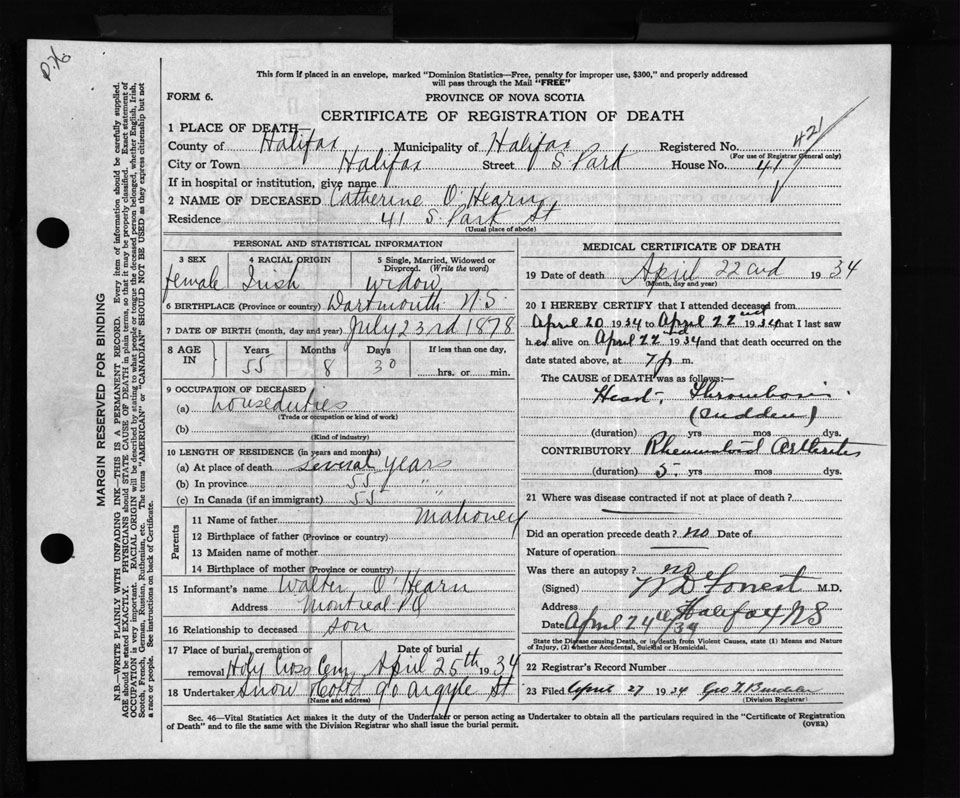 This form if placed in an envelope, marked "Dominion Statistics—Free, penalty for improper use, $300," and properly addressed
will pass through the Mail "FREE"
FORM 6.
PROVINCE OF NOVA SCOTIA
CERTIFICATE OF REGISTRATION OF DEATH
1 PLACE OF DEATH—
County of Halifax Municipality of Halifax Registered No. 421
(For use of Registrar General only)
City or Town Halifax Street S. Park House No. 41
If in hospital or institution, give name
2 NAME OF DECEASED Catherine O'Hearn
Residence 41 S. Park St
(Usual place of abode)
PERSONAL AND STATISTICAL INFORMATION
3 SEX 4 RACIAL ORIGIN 5 Single, Married, Widowed or Divorced. (Write the word)
female Irish widow
6 BIRTHPLACE (Province or country) Dartmouth N.S.
7 DATE OF BIRTH (month, day and year) July 23rd 1878
8 AGE IN Years Months Days If less than one day,
55 8 30 hrs. or min.
9 OCCUPATION OF DECEASED
(a) houseduties
(Trade or occupation or kind of work)
(b)
(Kind of industry)
10 LENGTH OF RESIDENCE (in years and months)
(a) At place of death several years
(b) In province 55 "
(c) In Canada (if an immigrant) 55 "
Parents
11 Name of father Mahoney
12 Birthplace of father (Province or country)
13 Maiden name of mother
14 Birthplace of mother (Province or country)
15 Informant's name Walter O'Hearn
Address Montreal P.Q
16 Relationship to deceased son
17 Place of burial, cremation or removal Holy Cross Cem Date of burial April 25th 1934
18 Undertaker Snow 90 Argyle St
(Name and address)
MEDICAL CERTIFICATE OF DEATH
19 Date of death April 22nd 1934
(Month, day and year)
20 I HEREBY CERTIFY that I attended deceased from
April 20 1934 to April 22nd 1934 that I last saw
her alive on April 22nd 1934 and that death occurred on the
date stated above, at 7 p m.
The CAUSE of DEATH was as follows:—
Heart, Thrombosis
(sudden)
(duration) yrs mos dys.
CONTRIBUTORY Rheumatoid Arthritis
(duration) 5 yrs mos dys.
21 Where was disease contracted if not at place of death?
Did an operation precede death? no Date of
Nature of operation
Was there an autopsy? no
(Signed) M.D.
Address Halifax NS
Date April 24th/34
State the Disease causing Death, or in death from Violent Causes, state (1) Means and Nature
of Injury, (2) whether Accidental, Suicidal or Homicidal.
22 Registrar's Record Number
23 Filed April 27 1934 Geo
(Division Registrar)
Sec. 46—Vital Statistics Act makes it the duty of the Undertaker or person acting as Undertaker to obtain all the particulars required in the "Certificate of Registration
of Death" and to file the same with the Division Registrar who shall issue the burial permit.
(OVER)
MARGIN RESERVED FOR BINDING
N.B.—WRITE PLAINLY WITH UNFADING INK—THIS IS A PERMANENT RECORD. Every item of information should be carefully supplied.
AGE should be stated EXACTLY. PHYSICIANS should STATE CAUSE OF DEATH in plain terms, so that it may be properly classified. Exact statement of
OCCUPATION is very important. RACIAL ORIGIN will be described by stating to what people or tongue the deceased person belonged, whether English, Irish,
Scotch, French, German, Russian, Ruthenian, etc. The terms "AMERICAN" or "CANADIAN" SHOULD NOT BE USED as they express citizenship but not
a race or people. See instructions on back of Certificate.